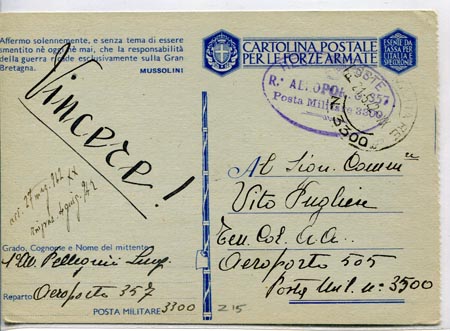 Affermo solennemente, e senza tema di essere
smentito nè oggi nè mai, che la responsabilità
della guerra ricade esclusivamente sulla Gran
Bretagna.
MUSSOLINI
CARTOLINA POSTALE
PER LE FORZE ARMATE
ESENTE DA
TASSA PER
L'ITALIA E
SPEDIZIONE
Vincere!
R.° AEROPORTO 357
Posta Militare 3300
POSTE
MILITARE
N. 3300
arr. 27 mag. 942 XX
Al Sig.
Vito Pugliese
Ten. Col. a.a.
Aeroporto 505
Posta Mil. n: 3500
Grado, Cognome e Nome del mittente
1° M. Pellegrini Luig.
Reparto Aeroporto 357
POSTA MILITARE 3300
Z15